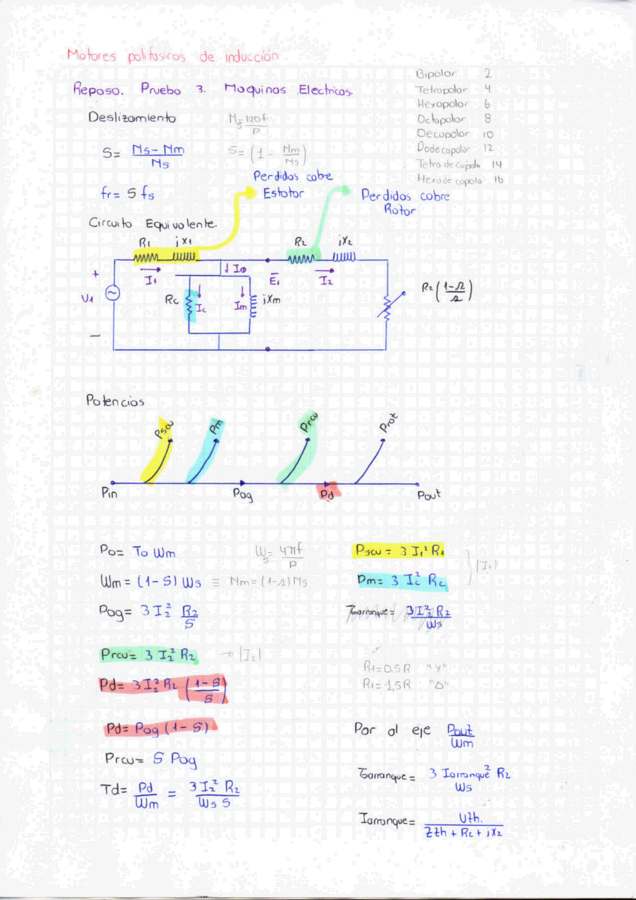 Motores polifasicos de inducción
Repaso. Prueba 3. Maquinas Electricas.
Bipolar 2
Tetrapolar 4
Hexapolar 6
Octapolar 8
Decapolar 10
Dodecapolar 12
Tetradecapolo 14
Hexadecapolo 16
Deslizamiento
Ns=120f/P
S= Ns-Nm/Ns
S=(1-Nm/Ns)
fr= S fs
Perdidas cobre
Estator
Perdidas cobre
Rotor
Circuito Equivalente.
R1 jX1 R2 jX2
I1 IΦ E1 I2
+ V1 -
Rc Ic Im jXm
R2(1-s/s)
Potencias
Pscu Pm Prcu Prot
Pin Pag Pd Pout
Po= To Wm
Ws=4πf/P
Wm= (1-S) Ws ≡ Nm=(1-s)Ns
Pag= 3I2² R2/S
Prcu= 3 I2² R2 → |I2|
Pd= 3I2² R2 (1-S/S)
Pd= Pag (1-S)
Prcu= S Pag
Td= Pd/Wm = 3I2² R2/Ws S
Pscu= 3 I1² R1
Pm= 3 Ic² Rc
|I1|
Tarranque= 3I2² R2/Ws
R1=0,5R "Y"
R1=1,5R "Δ"
Par al eje Pout/Wm
Tarranque= 3 Iarranque² R2/Ws
Iarranque= Vth/Zth+R2+jX2